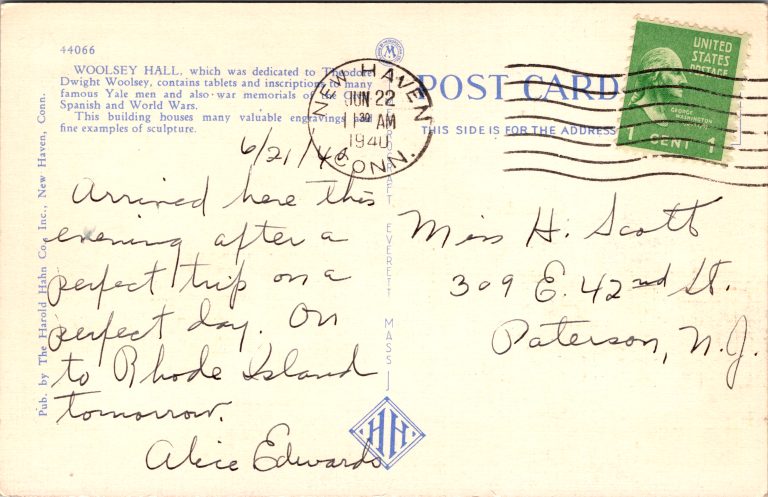 44066
WOOLSEY HALL, which was dedicated to Theodore
Dwight Woolsey, contains tablets and inscriptions to many
famous Yale men and also war memorials of the
Spanish and World Wars.
This building houses many valuable engravings and
fine examples of sculpture.
Pub. by The Harold Hahn Co., Inc., New Haven, Conn.
6/21/40
Arrived here this
evening after a
perfect trip on a
perfect day. On
to Rhode Island
tomorrow.
Alice Edwards
EVERETT MASS
HH
M
NEW HAVEN
JUN 22
11 30 AM
1940
CONN.
POST CARD
THIS SIDE IS FOR THE ADDRESS
UNITED
STATES
POSTAGE
GEORGE
WASHINGTON
1 CENT 1
Miss H. Scott
309 E. 42nd St.
Paterson, N.J.